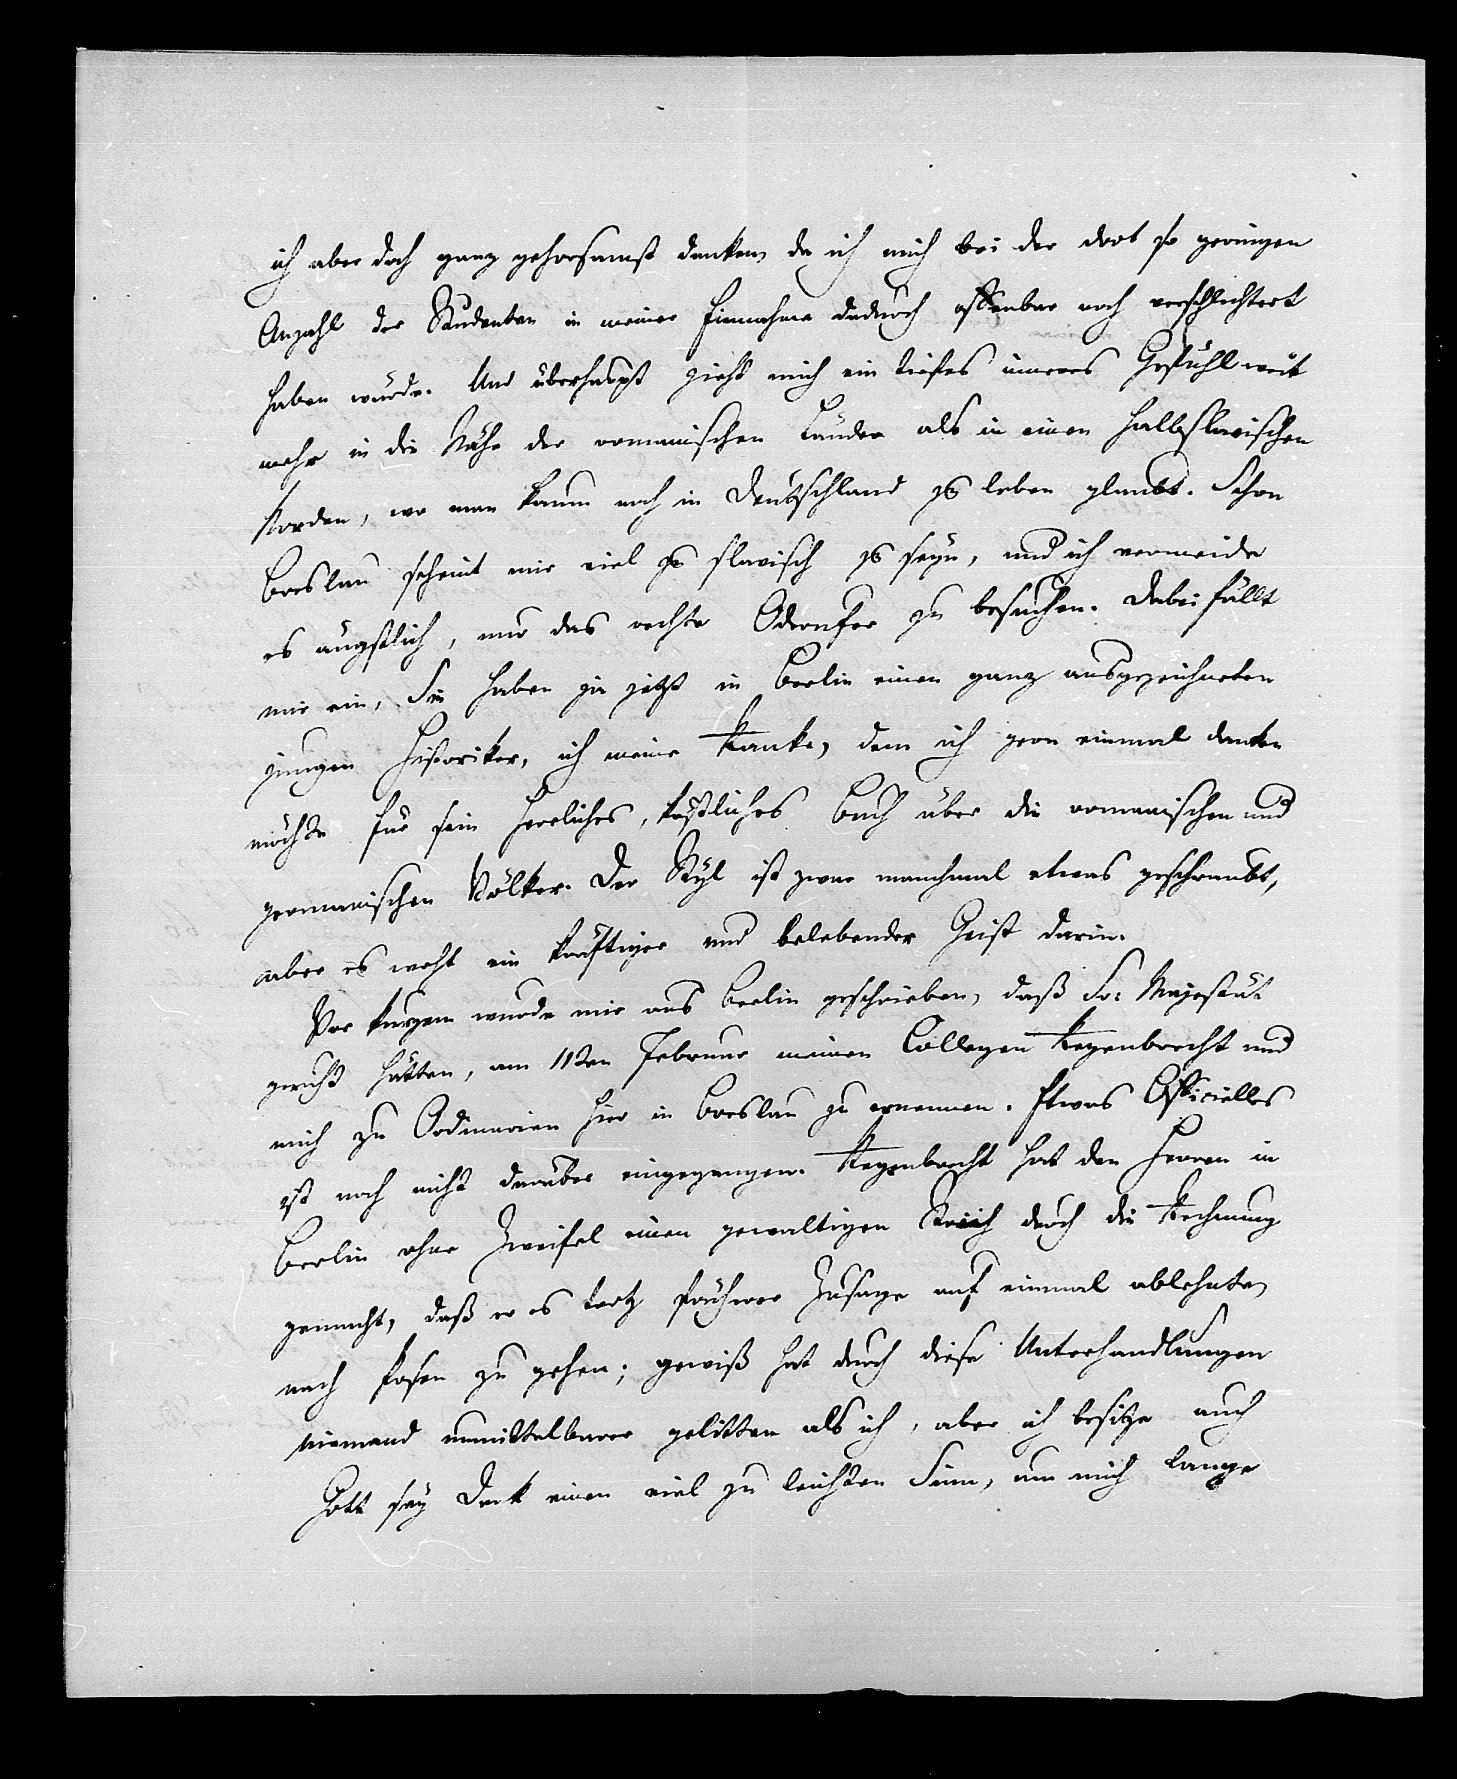 ich aber doch ganz gehorsamst danken, da ich mich bei der dort so geringen
Anzahl der Studenten in meiner Einnahme dadurch offenbar noch verschlechtert
haben würde. Und überhaupt zieht mich ein tiefes inneres Gefühl weit
mehr in die Nähe der romanischen Länder als in einen halbslavischen
Norden, wo man kaum noch in Deutschland zu leben glaubt. Schon
Breslau scheint mir viel zu slavisch zu seyn, und ich vermeide
es ängstlich, nur das rechte Oderufer zu besuchen. Dabei fällt
mir ein, Sie haben ja jetzt in Berlin einen ganz ausgezeichneten
jungen Historiker, ich meine Ranke, dem ich gern einmal danken
möchte für sein herrliches, köstliches Buch über die romanischen und
germanischen Völker. Der Styl ist zwar manchmal etwas geschraubt,
aber es weht ein kräftiger und belebender Geist darin.
Vor kurzem wurde mir aus Berlin geschrieben, daß Se: Majestät
geruht hätten, am 11ten Februar meinen Collegen Regenbrecht und
mich zu Ordinarien hier in Breslau zu ernennen. Etwas Officielles
ist noch nicht darüber eingegangen. Regenbrecht hat den Herren in
Berlin ohne Zweifel einen gewaltigen Strich durch die Rechnung
gemacht, daß er es trotz früherer Zusage auf einmal ablehnte,
nach Posen zu gehen; gewiß hat durch diese Unterhandlungen
niemand unmittelbarer gelitten als ich, aber ich besitze auch
Gott sey Dank einen viel zu leichten Sinn, um mich lange